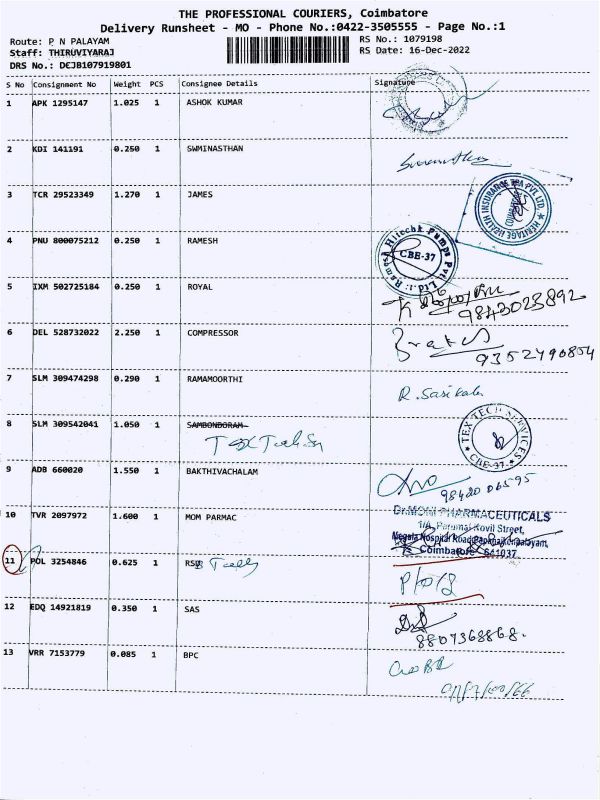 THE PROFESSIONAL COURIERS, Coimbatore
Delivery Runsheet - MO - Phone No.:0422-3505555 - Page No.:1
Route: P N PALAYAM RS No.: 1079198
Staff: THIRUVIYARAJ RS Date: 16-Dec-2022
DRS No.: DCJB107919801
S No Consignment No Weight PCS Consignee Details Signature
1 APK 1295147 1.025 1 ASHOK KUMAR
2 KDI 141191 0.250 1 SWMINASTHAN
3 TCR 29523349 1.270 1 JAMES
HERITAGE HEALTH INSURANCE TPA PVT LTD.
4 PNU 800075212 0.250 1 RAMESH
Ramesh Hitechk Pumps Pvt. Ltd.
CBE-37
5 IXM 502725184 0.250 1 ROYAL
9843023892
6 DEL 528732022 2.250 1 COMPRESSOR
9352490854
7 SLM 309474298 0.290 1 RAMAMOORTHI
R. Sasikala
8 SLM 309542041 1.050 1 SAMBONDORAM
TEX TECH SERVICES
CBE-37
9 ADB 660020 1.550 1 BAKTHIVACHALAM
98420 06595
10 TVR 2097972 1.600 1 MOM PARMAC
Dr.MOM PHARMACEUTICALS
1/A, Perumal Kovil Street,
Coimbatore 641037
11 POL 3254846 0.625 1
12 EDQ 14921819 0.350 1 SAS
8807368868.
13 VRR 7153779 0.085 1 BPC